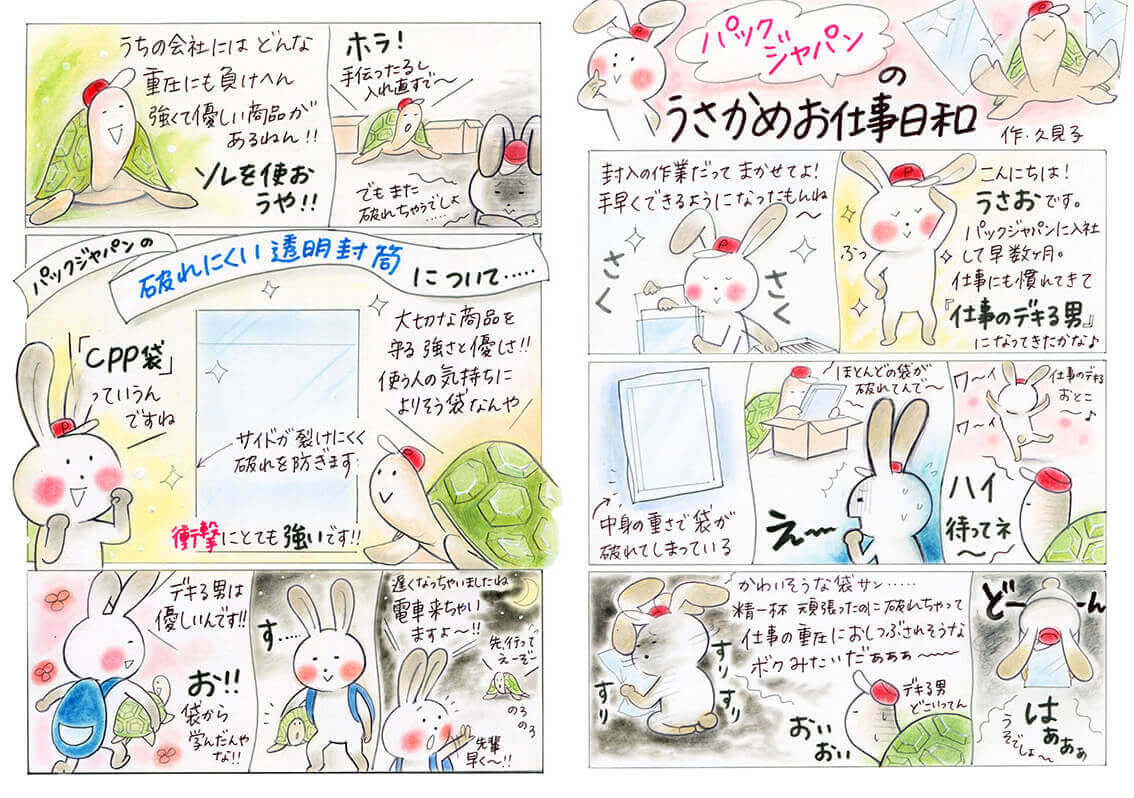 パック
ジャパン
の
うさかめお仕事日和
作・久見子
P
こんにちは!
うさおです。
パックジャパンに入社
して早数ヶ月。
仕事にも慣れてきて
『仕事のデキる男』
になってきたかな♪
ふっ
封入の作業だって まかせてよ!
手早くできるようになったもんね
〜
さくさく
仕事のデキる
おとこ
〜♪
ワ〜イ
ワ〜イ
ハイ
待ってネ
〜
ほとんどの袋が
破れてんで〜
え〜
中身の重さで袋が
破れてしまっている
どーーん
はぁぁぁ
うそでしょ〜
かわいそうな袋サン……
精一杯 頑張ったのに破れちゃって
仕事の重圧におしつぶされそうな
ボクみたいだぁぁぁ〜
すりすり
すりすり
デキる男
どこいってん
おぃおぃ
ホラ!
手伝ったるし
入れ直すで〜
でもまた
破れちゃうでしょ
……
うちの会社には どんな
重圧にも負けへん
強くて優しい商品が
あるねん!!
ソレを使お
うや!!
パックジャパンの
破れにくい透明封筒
について……
大切な商品を
守る 強さと優しさ!!
使う人の気持ちに
よりそう袋なんや
「CPP袋」
っていうん
ですね
サイドが裂けにくく
破れを防ぎます
衝撃にとても強いです!!
遅くなっちゃいましたね
電車来ちゃい
ますよ〜!!
先、行って
えーぞー
のろ
のろ
先輩
早く〜!!
す……
デキる男は
優しいんです!!
お!!
袋から
学んだんや
な!!